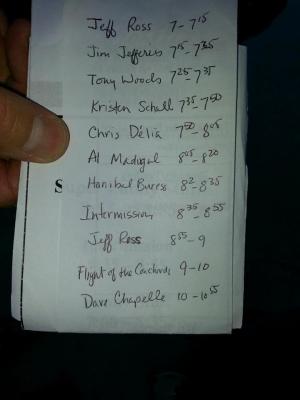 Jeff Ross 7-7¹⁵
Jim Jefferies 7¹⁵-7²⁵
Tony Woods 7²⁵-7³⁵
Kristen Schall 7³⁵-7⁵⁰
Chris Délia 7⁵⁰-8⁰⁵
Al Madrigal 8⁰⁵-8²⁰
Hanibal Buress 8²-8³⁵
Intermission 8³⁵-8⁵⁵
Jeff Ross 8⁵⁵-9
Flight of the Conchords 9-10
Dave Chapelle 10-10⁵⁵
S